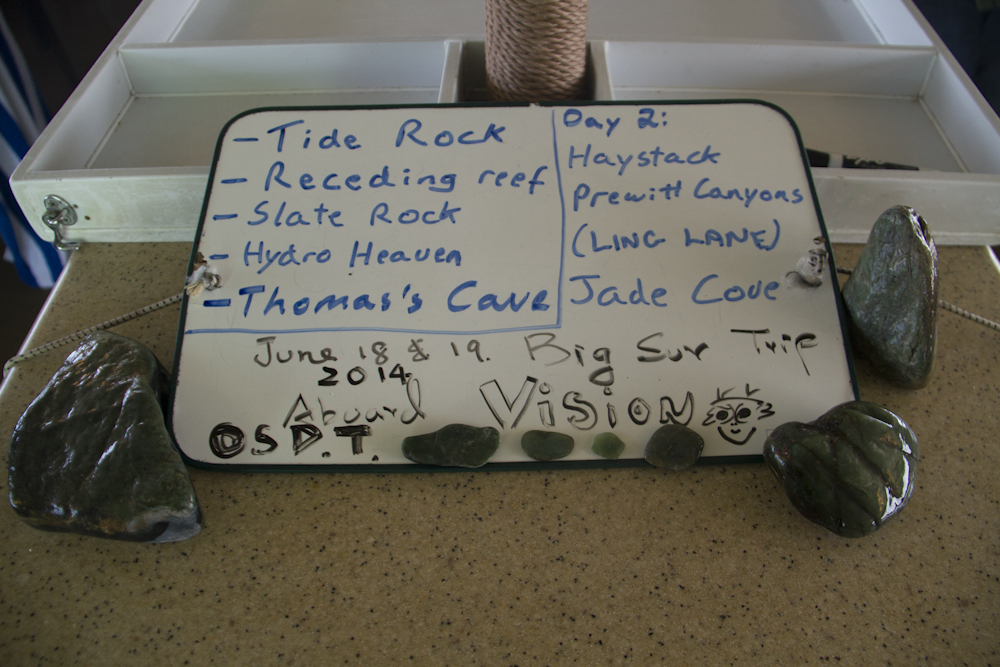 - Tide Rock
- Receding reef
- Slate Rock
- Hydro Heaven
- Thomas's Cave
Day 2:
Haystack
Prewitt Canyons
(LING LANE)
Jade Cove
June 18 & 19. Big Sur Trip
2014
Aboard VISION
DSDT.